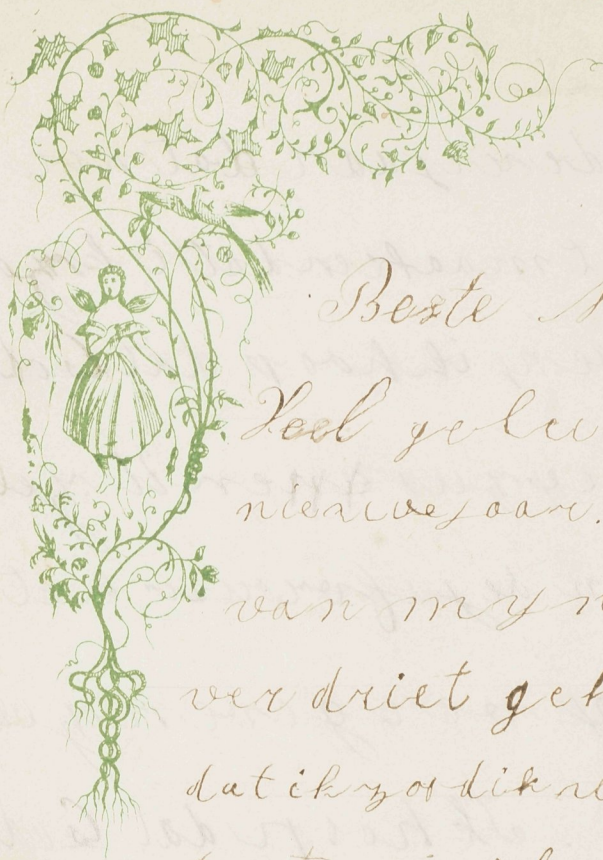 Beste
Veel gelu
nieuwejaar.
van myn
verdriet geh
dat ik zo dik